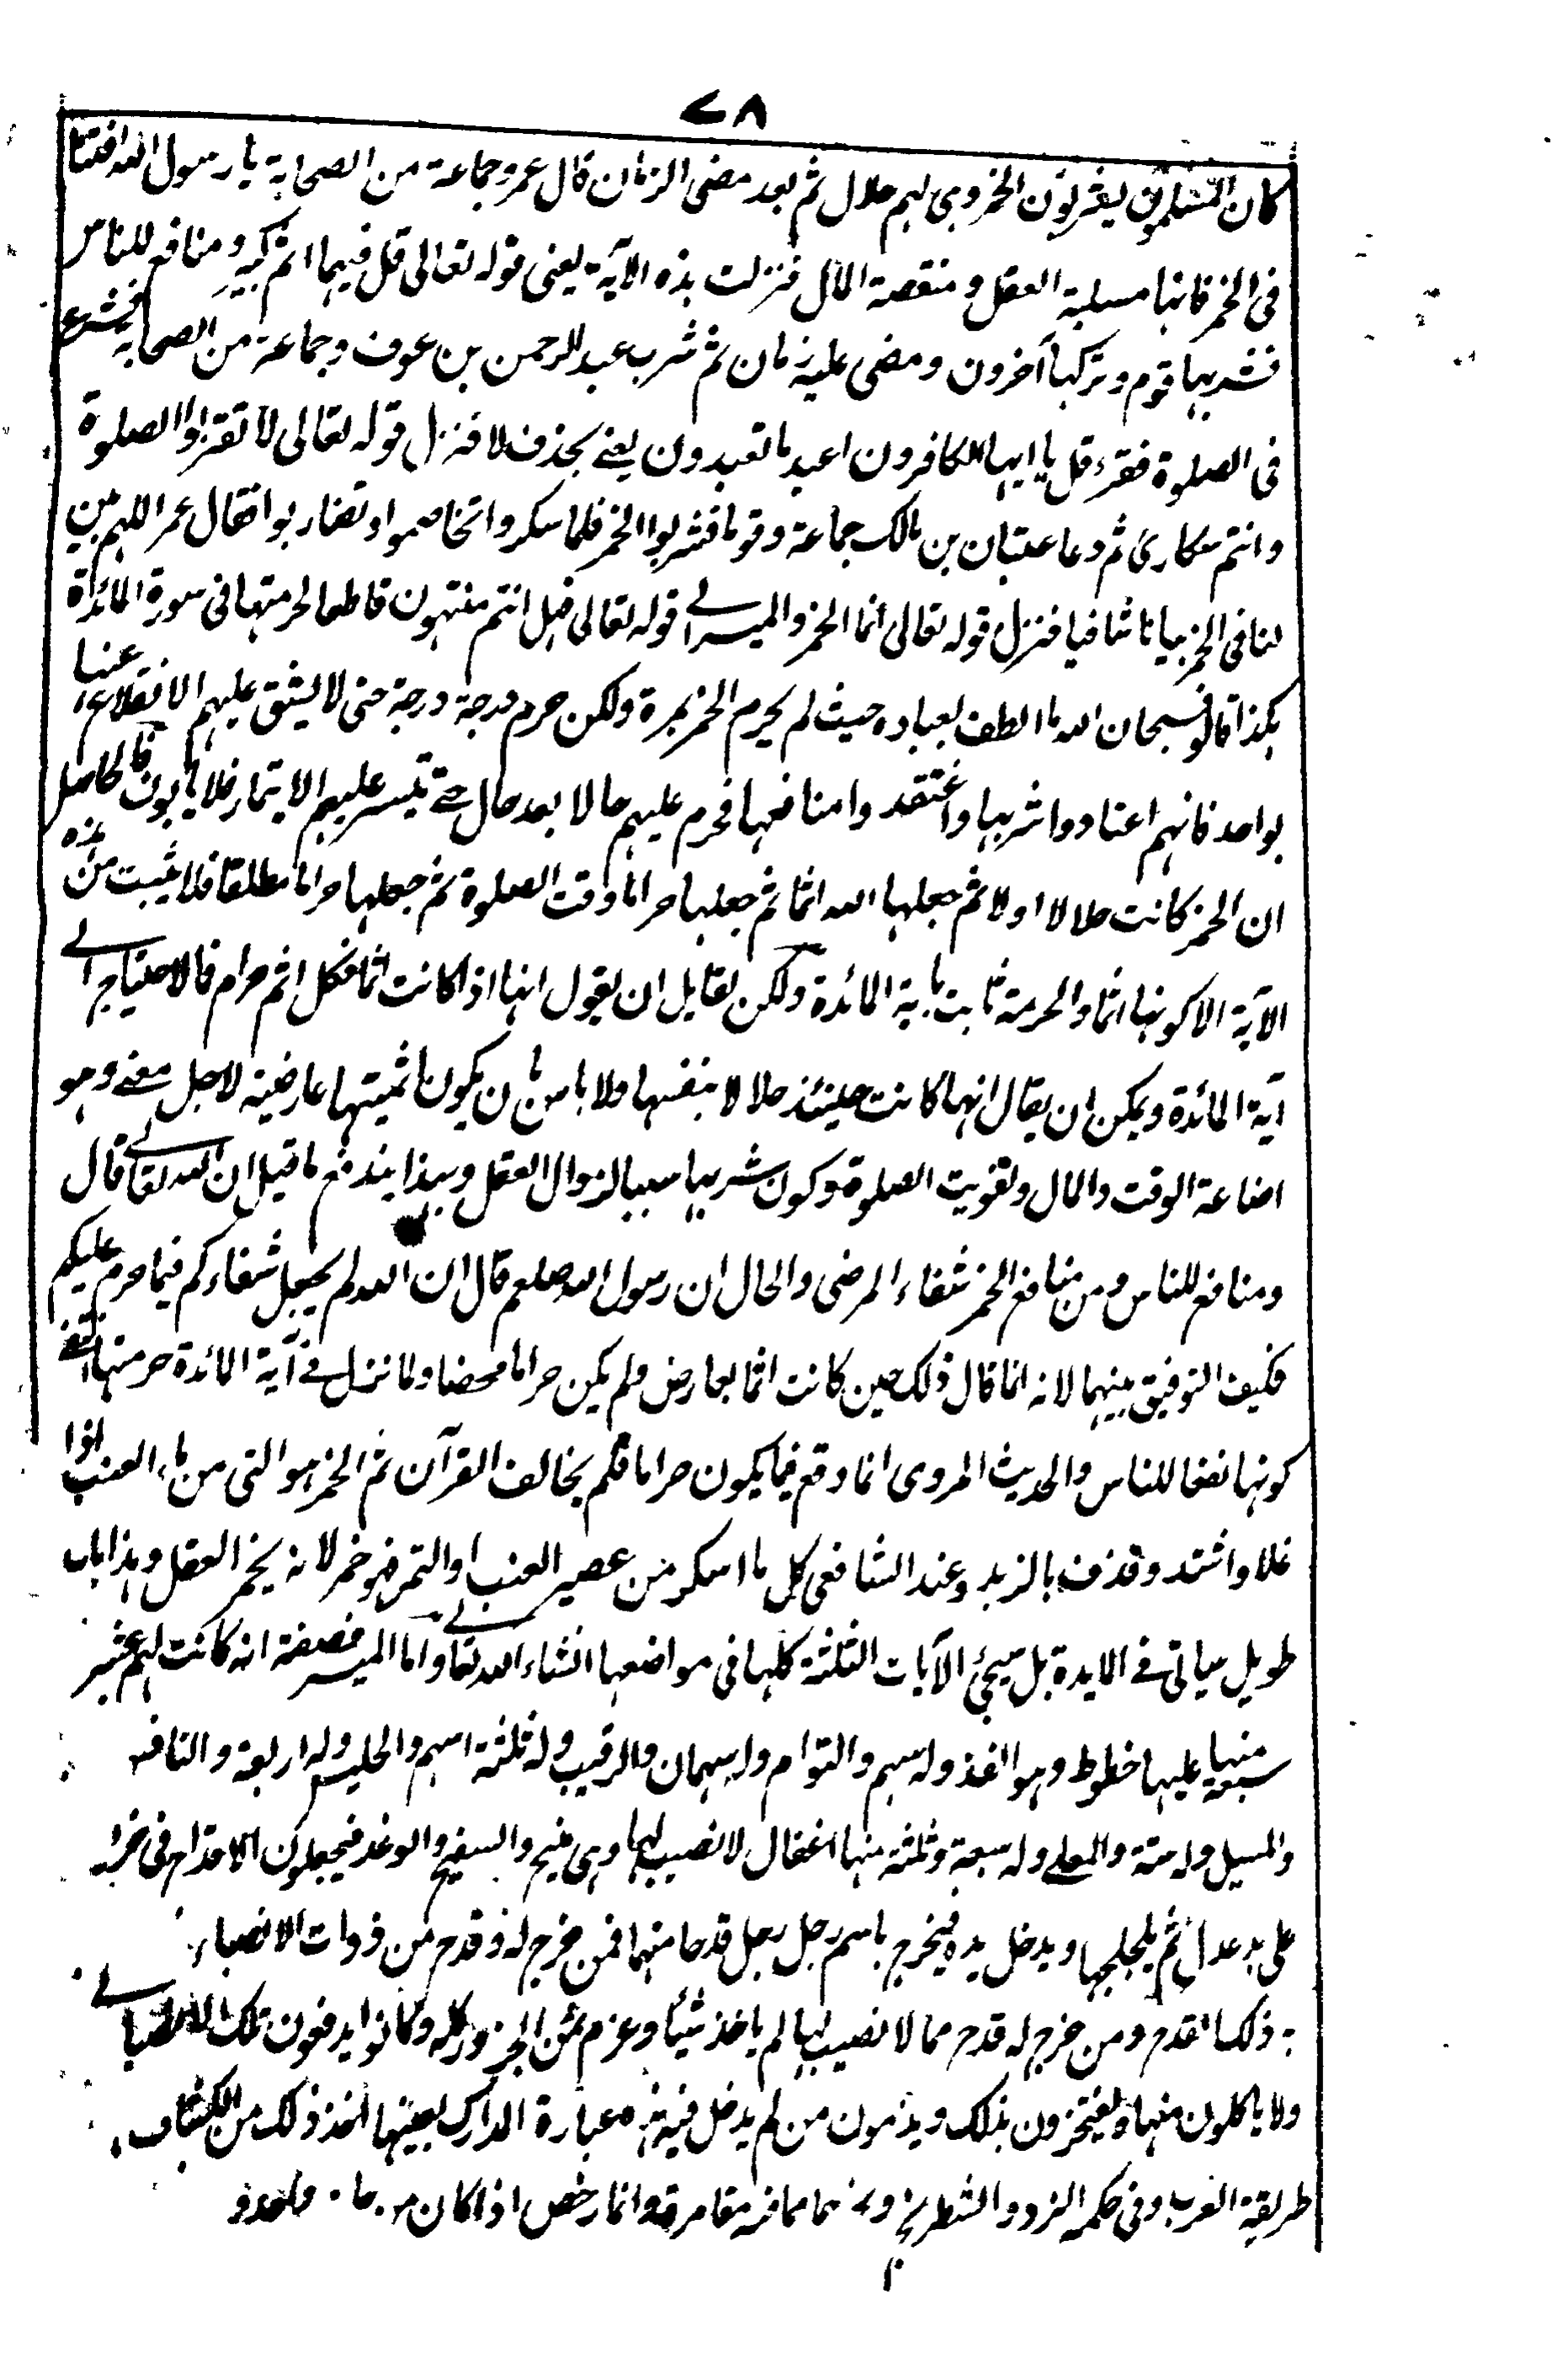 ٧٨
كان المسلمون يشربون الخمر وهي لهم حلال ثم بعد مضى الزمان قال عمر وجماعة من الصحابة يا رسول الله افتنا
فى الخمر فانها مسلبة العقل و منقصة المال فنزلت هذه الآية يعنى قوله تعالى قل فيهما اثم كبير و منافع للناس
فشربها قوم وتركها آخرون ومضى عليه زمان ثم شرب عبد الرحمن بن عوف وجماعة من الصحابة فشرع
فى الصلوة فقرء قل يا ايها الكافرون اعبد ما تعبدون يعنے بحذف لا فنزل قوله تعالى لا تقربوا الصلوة
وانتم سكارى ثم دعا عتبان بن مالك جماعة وقوما فشربوا الخمر فلما سكروا تخاصموا وتضاربوا فقال عمر اللهم بين
لنا فى الخمر بيانا شافيا فنزل قوله تعالى انما الخمر والميسر الے قوله تعالى فهل انتم منتهون قاطعا لحرمتها فى سورة المائدة
هكذا قالوا فسبحان الله ما الطف لعباده حيث لم يحرم الخمر بمرة ولكن حرم درجة درجة حتى لا يشق عليهم الانقلاع عنها
بواحد فانهم اعتادوا شربها واعتقدوا منافعها فحرم عليهم حالا بعد حال حتے تيسر عليهم الايتمار فلا يابون فالحاصل
ان الخمر كانت حلالا اولا ثم جعلها الله اثما ثم جعلها حراما وقت الصلوة ثم جعلها حراما مطلقا فلا يثبت من هذه
الآية الا كونها اثما والحرمة ثابت بآية المائدة ولكن لقايل ان يقول انها اذا كانت اثما فكل اثم حرام فالاحتياج الے
آية المائدة ويمكن ان يقال انها كانت حينئذ حلالا بنفسها ولا باس بان يكون اثميتها عارضية لاجل معنے وهو
اضاعة الوقت والمال وتفويت الصلوة وكون شربها سببا لزوال العقل وبهذا يندفع ما قيل ان الله تعالے قال
ومنافع للناس ومن منافع الخمر شفاء المرضى والحال ان رسول الله صلعم قال ان الله لم يجعل شفاءكم فيما حرم عليكم
فكيف التوفيق بينهما لانه انما قال ذلك حين كانت اثما بعارض ولم يكن حراما محضا ولما نزل فے آية المائدة حرمتها انتفے
كونها نفعا للناس والحديث المروى انما وقع فيما يكون حراما فلم يخالف القرآن ثم الخمر هو التى من ماء العنب اذا
غلا واشتد وقذف بالزبد وعند الشافعى كل ما اسكر من عصير العنب او التمر فهو خمر لانه يخمر العقل وهذا باب
طويل سياتى فے المايدة بل سيجئ الآيات الثلثة كلها فى مواضعها انشاء الله تعالے واما الميسر فصفته انه كانت لهم عشر
سبعة منها عليها خطوط وهو الفذ وله سهم والتوام وله سهمان والرقيب وله ثلثة اسهم والحليس وله اربعة والنافس
والمسبل وله ستة والمعلے وله سبعة وثلثة منها اغفال لا نصيب لها وهى منيح والسفيح والوغد فيجعلون الاقداح فى خريطة
على يد عدل ثم يلجلجها ويدخل يده فيخرج باسم رجل رجل قدحا منهما فمن خرج له قدح من ذوات الانصباء
ذلك القدح ومن خرج له قدح مما لا نصيب لها لم ياخذ شيئا وغرم ثمن الجزور كله وكانوا يدفعون تلك الانصبا الے
ولا ياكلون منها ويفتخرون بذلك ويذمون من لم يدخل فيه هذه عبارة المدارك بعينها اخذ ذلك من الكشاف
طريقة العرب وفى حكمه النرد والشطرنج و مما فيه مقامرة وانما رخص اذا كان من